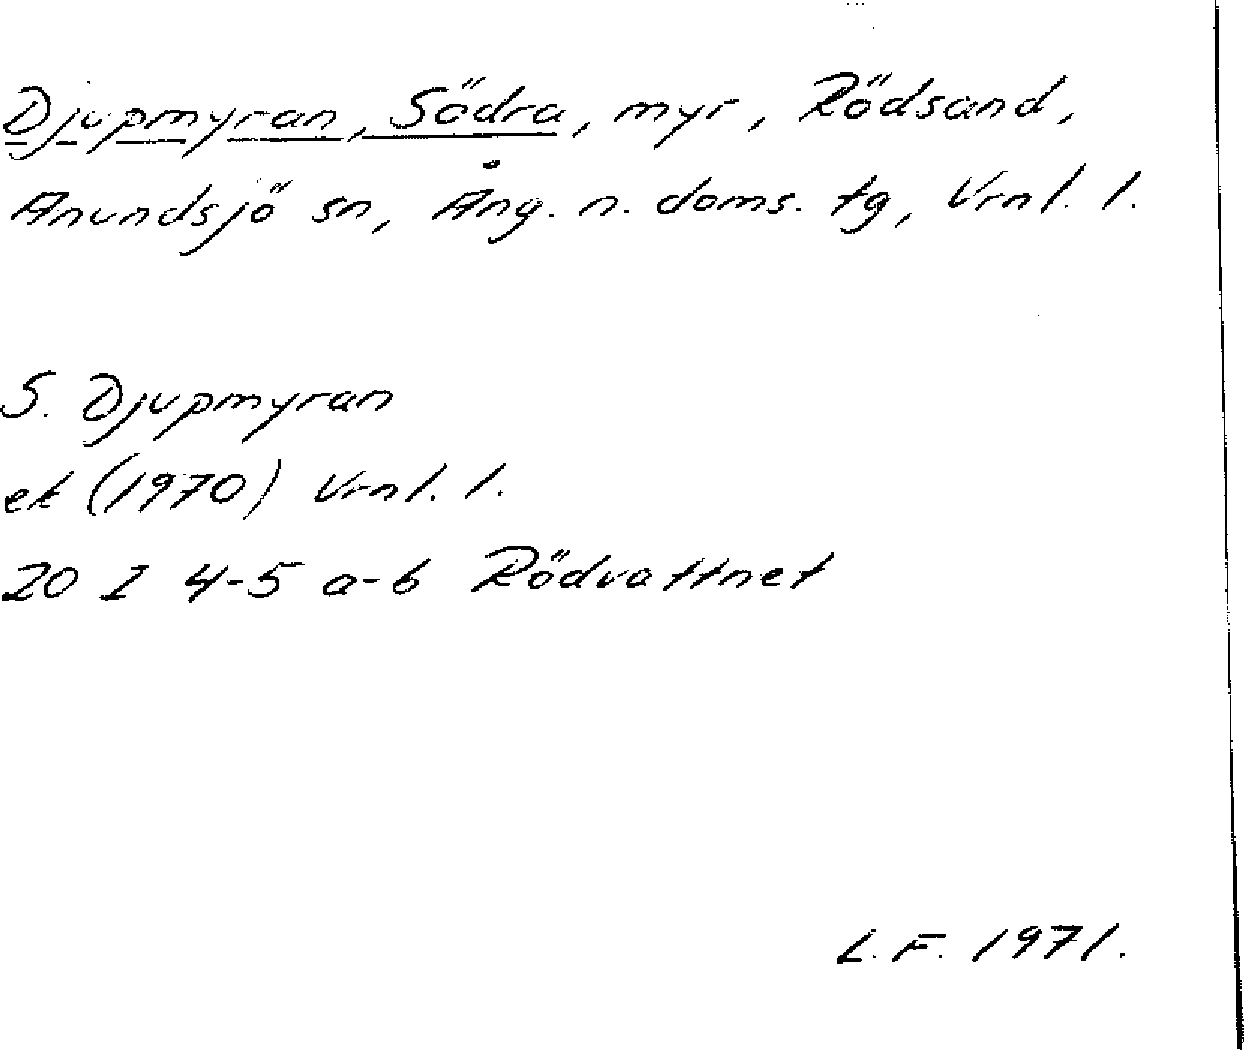 Djupmyran, Södra, myr, Rödsand,
Anundsjö sn, Ång. n. doms. tg, Vrnl. l.
S. Djupmyran
ek (1970) Vrnl. l.
20 I 4-5 a-b Rödvattnet
L.F. 1971.